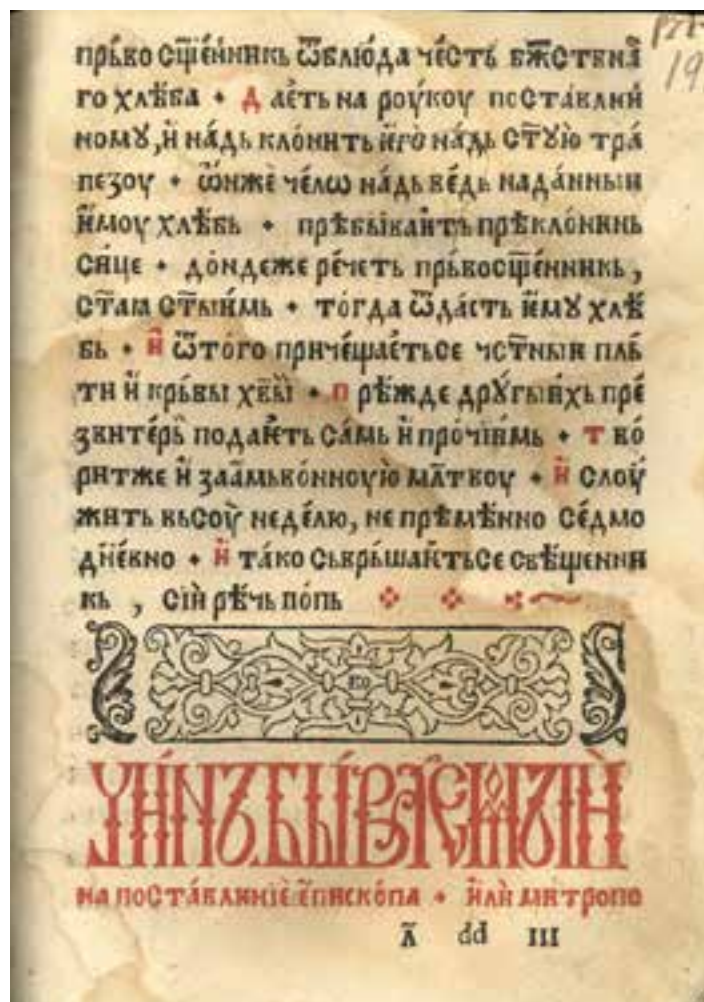 прьво сщ҃е́нникь ѿблю́да че́сть бж҃ствна
го хлѣ́ба • д ае́ть на роу́коу поста́влꙗнꙗ
номꙋ, и҆ на́дь клонить ѥго̀ на́дь ст҃ꙋю̀ тра́
пезоу • ѡ҆нжѐ че́лѡ на́дь ве́дь нада́нныи
ѥмоу хлѣ́бь • прѣбыва́ѥть прѣкло́нѥнь
си́це • до́ндеже ре́четь прьвосщ҃е́нникь ,
ст҃аꙗ ст҃ы́имь • тогда ѿда́сть ѥмꙋ хлѣ́
бь • и҆ ѿто́го прича́щае́тьсе чст҃ныи пль
ти и҆ крьвы хв҃ы̀ • п рѣ́жде дрꙋ́гыихь пре́
звите́рь подаѥ́ть са́мь и҆ про́чіимь • т во́
ритже и҆ заа́мьво́нноую̀ мл҃твоу • и҆ слоу́
жить вьсоу̀ неде́лю, не прѣмѣ́нно се́дмо
дне́вно • и҆ та́ко сьврьша́ѥтьсе свѣ́щенни
кь , сі́и рѣ́чь по́пь
чи́нъ быва́ѥмыи
на поста́влѥніѐ ѐписко́па • и҆лѝ митропо
л҃ dd III